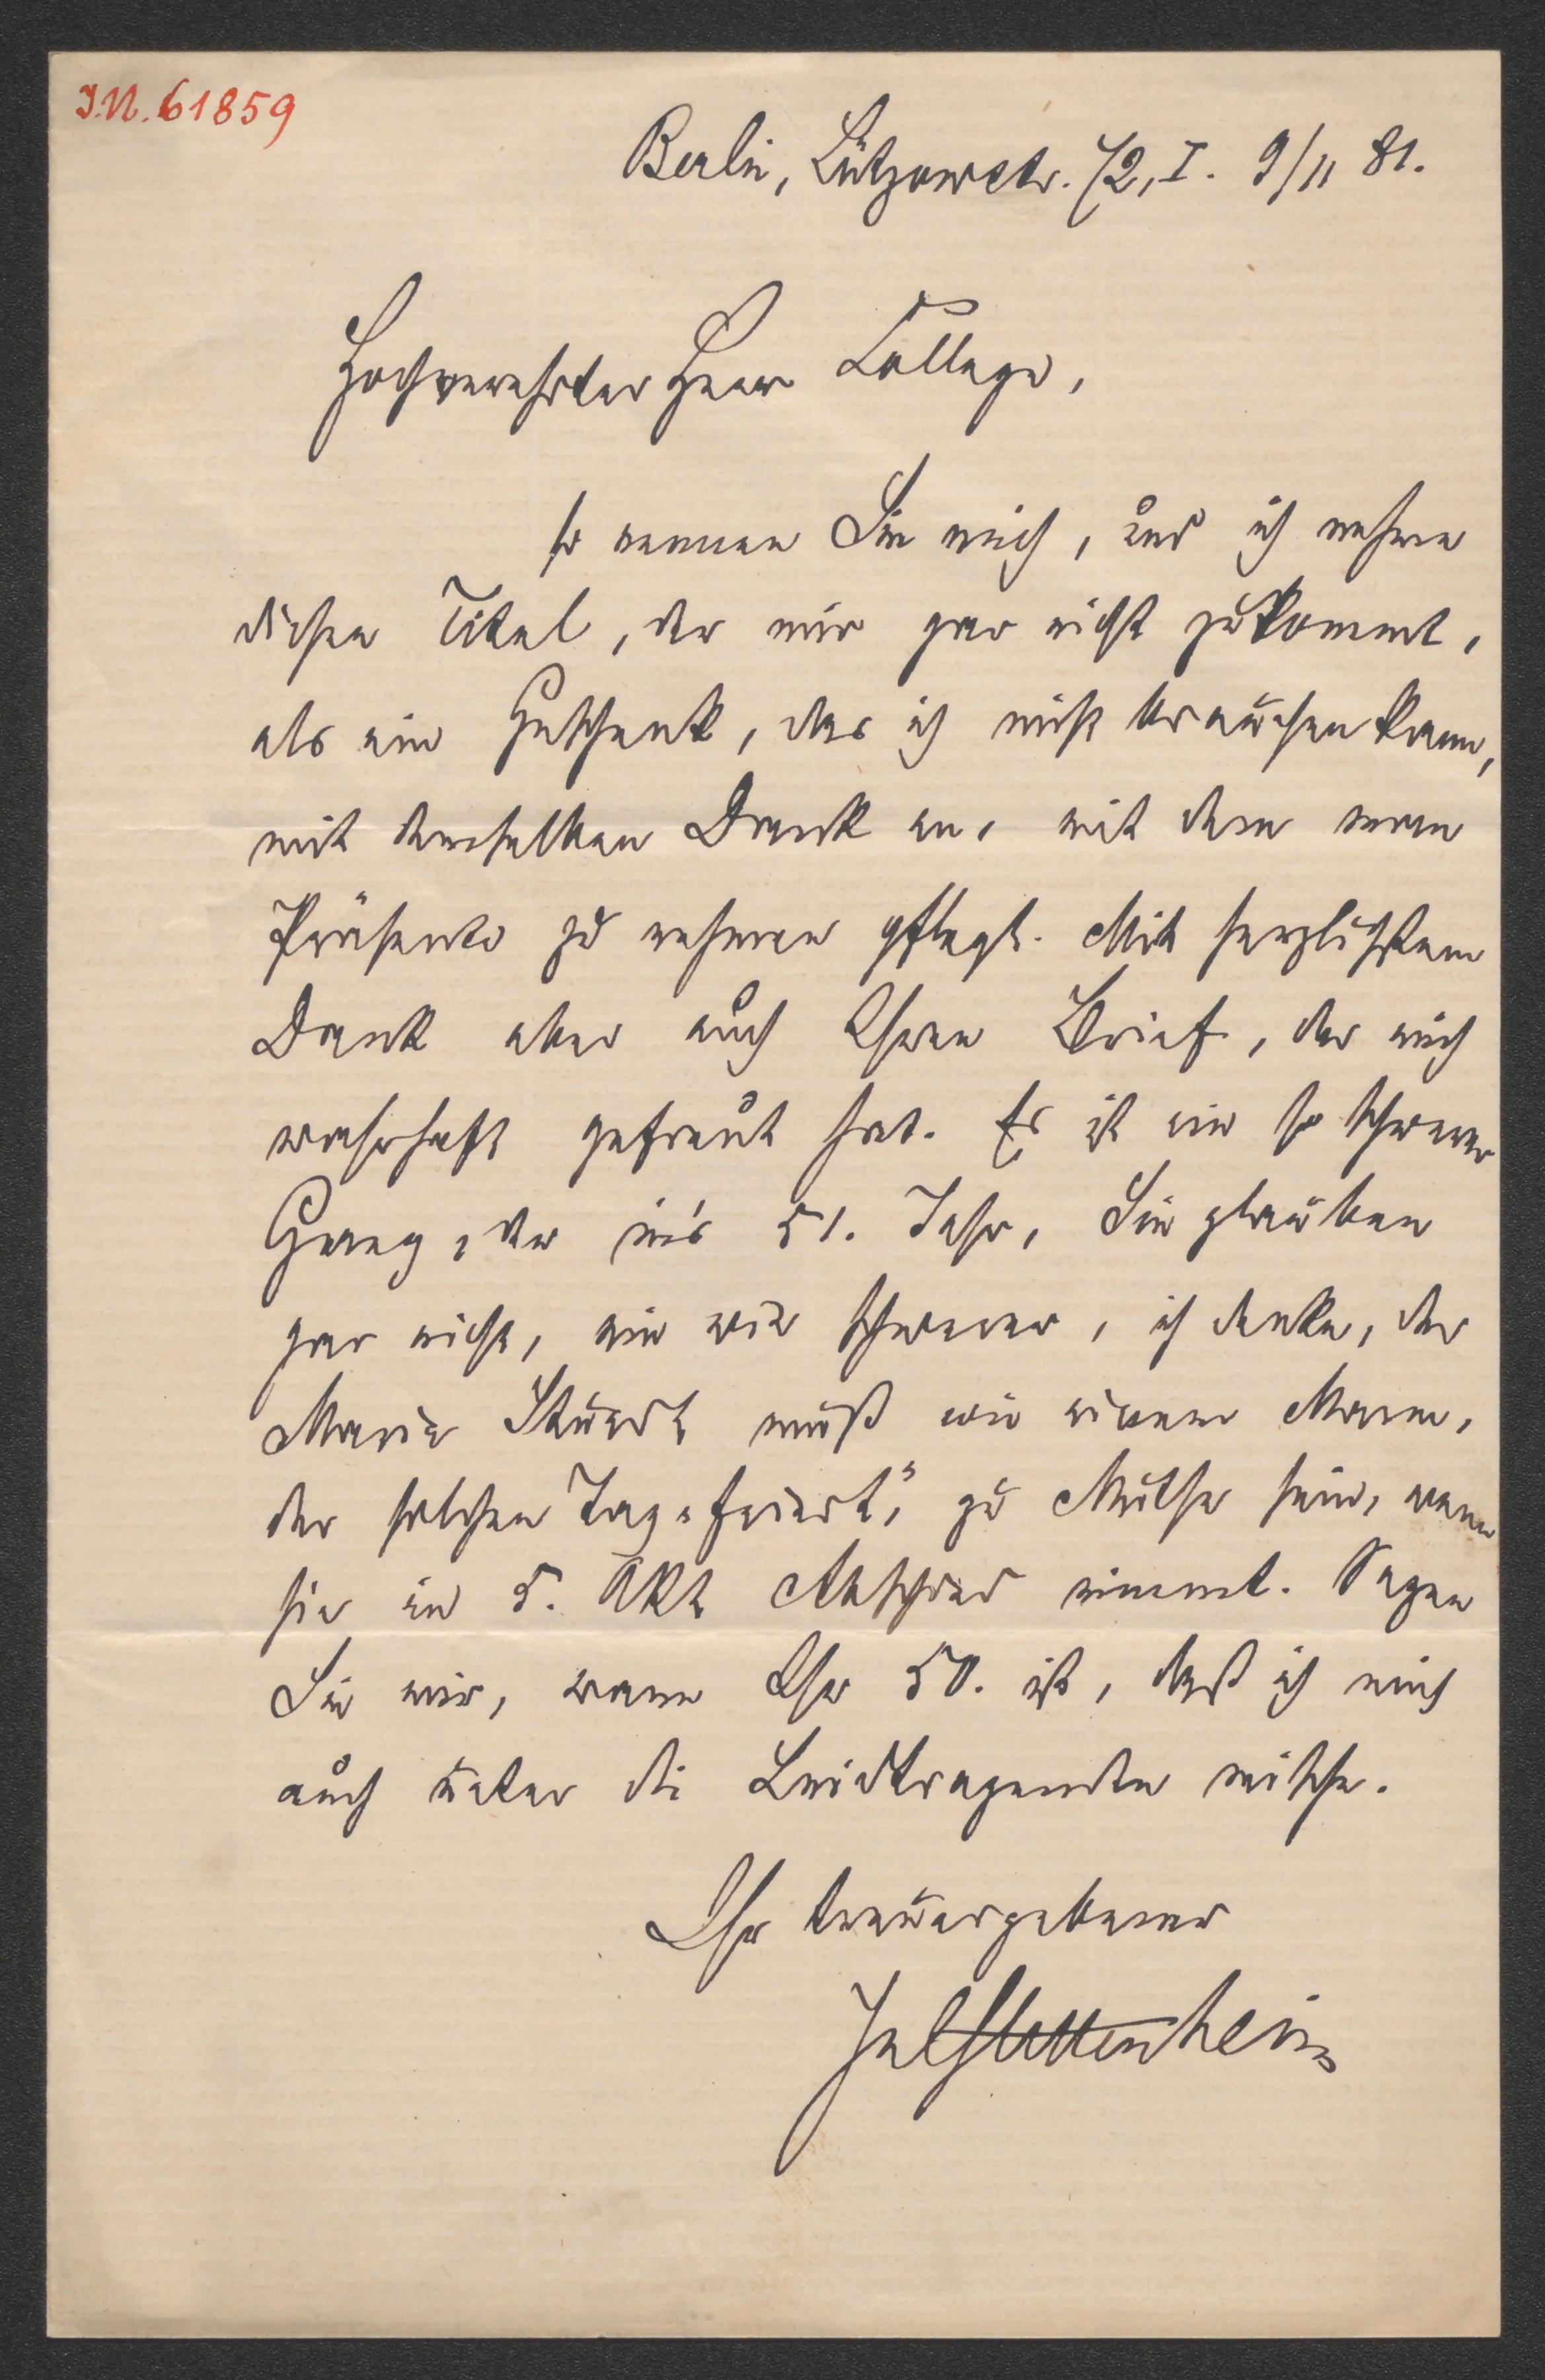 I.N. 61859
Berlin, Lützowstr. 72, I. 9/11 81.
Hochverehrter Herr College,
so nennen Sie mich, und ich nehme
diesen Titel, der mir gar nicht zukommt,
als ein Geschenk, das ich nicht brauchen kann,
mit demselben Dank an, mit dem man
Präsente zu nehmen pflegt. Mit herzlichstem
Dank aber auch Ihren Brief, der mich
wahrhaft gefreut hat. Es ist ein so schwerer
Gang, der in's 51. Jahr, Sie glauben
gar nicht, ein wie schwerer, ich denke, der
Maria Stuart muß wie einem Mann,
der solchen Tag „feiert", zu Muthe sein, wenn
sie im 5. Akt Abschied nimmt. Sagen
Sie mir, wann Ihr 50. ist, daß ich mich
auch unter die Leidtragenden mische.
Ihr treuergebener
Jul Stettenheim